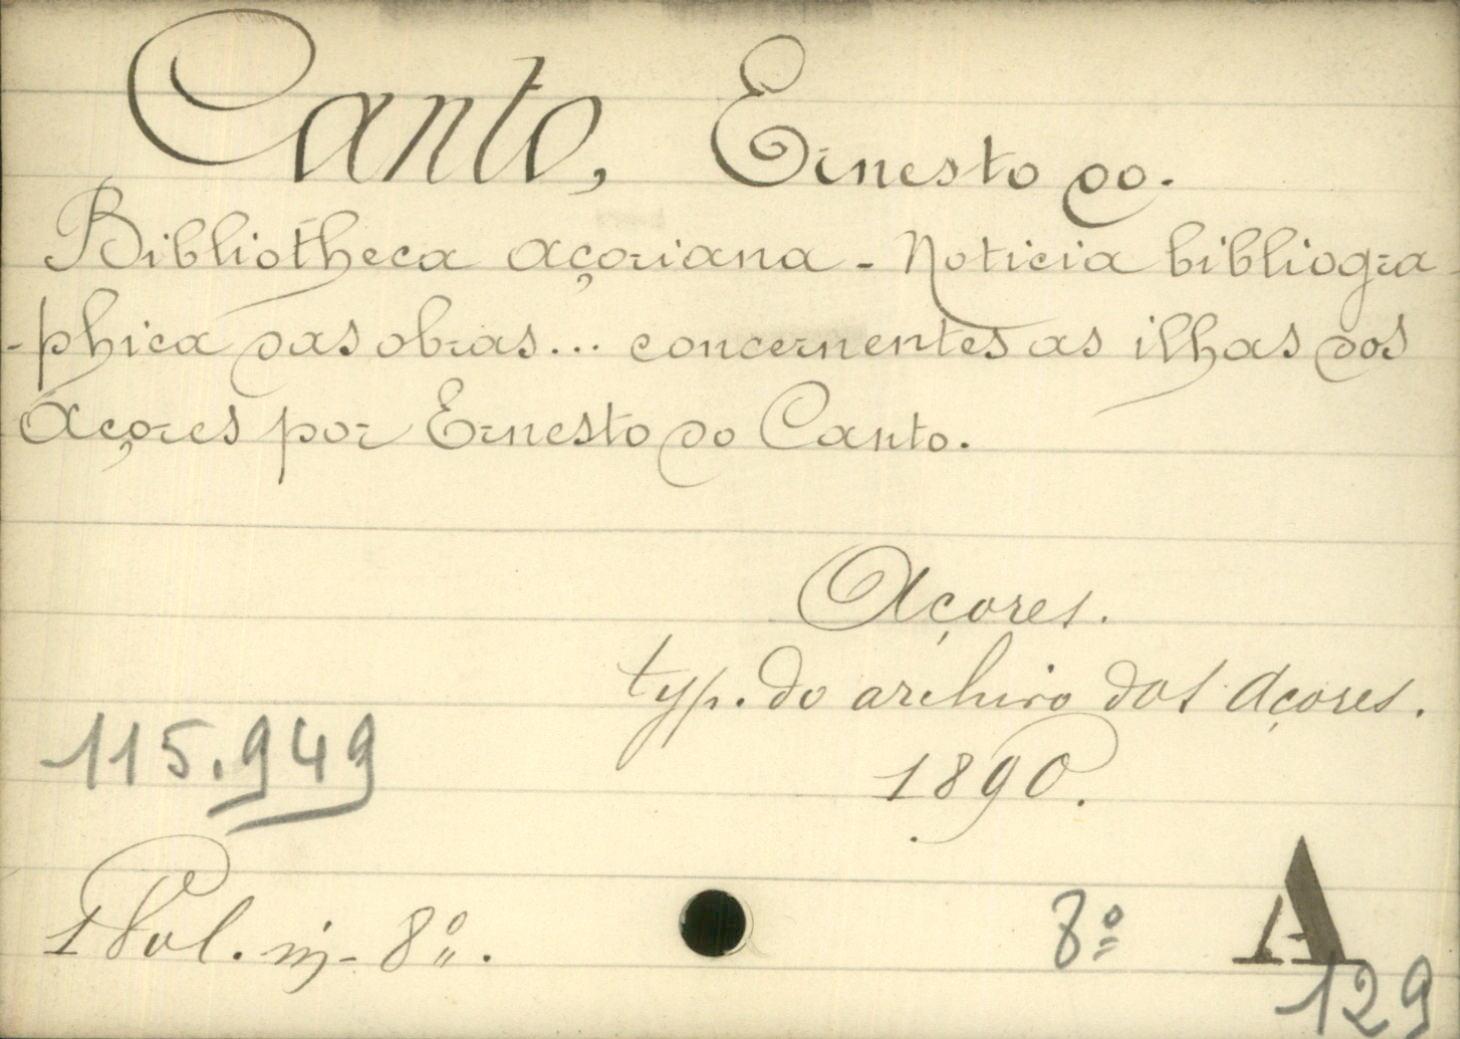 Canto, Ernesto do.
Bibliotheca açoriana - Noticia bibliogra-
-phica das obras... concernentes as ilhas dos
Açores por Ernesto do Canto.
Açores.
typ. do archivo dos Açores.
1890.
115.949
1 Vol. in-8º.
8º A
129